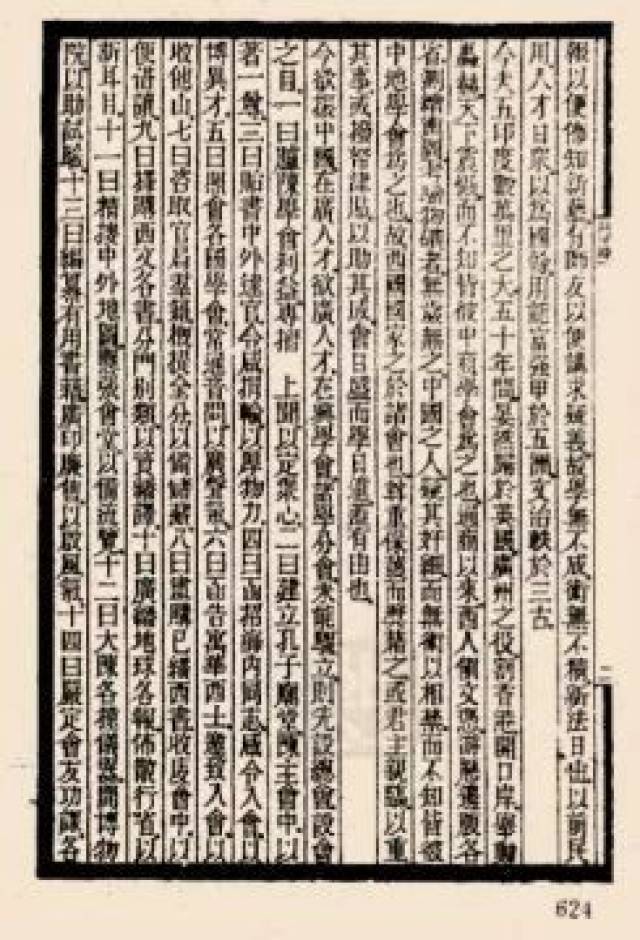 報以便傳知新藝有師友以便講求疑義故學無不成術無不精新法日出以前民
用人才日眾以為國幹用能富強甲於五洲文治軼於三古
今夫五印度數萬里之大五十年間晏然歸於英國廣州之役割香港開口岸舉動
轟赫天下震慴而不知皆彼中商學會為之也通商以來西人領文憑游歷邊腹各
省測繪輿圖考驗物礦者無歲無之中國之人疑其奸細而無術以相禁而不知皆彼
中地學會為之也故西國國家之於諸會也尊重保護而獎藉之或君主親臨以重
其事或撥帑津貼以助其成會日盛而學日進蓋有由也
今欲振中國在廣人才欲廣人才在興學會諸學分會未能驟立則先設總會設會
之目一曰臚陳學會利益專摺 上聞以定眾心二曰建立孔子廟堂陳主會中以
著一尊三曰貽書中外達官令咸捐輸以厚物力四曰函招海內同志咸令入會以
博異才五曰照會各國學會常通音問以廣聲氣六曰函告寓華西士邀致入會以
收他山七曰咨取官局羣籍概提全分以備儲藏八曰盡購已繙西書收庋會中以
便借讀九曰擇購西文各書分門別類以資繙譯十曰廣繙地球各報佈散行省以
新耳目十一曰精搜中外地圖懸張會堂以備流覽十二曰大陳各種儀器開博物
院以助試驗十三曰編纂有用書籍廣印廉售以啟風氣十四曰嚴定會友功課各
二
624